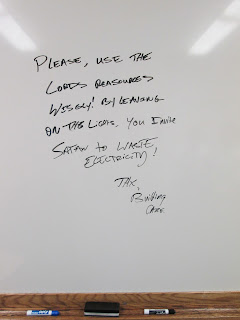 PLEASE, USE THE
LORDS RESOURCES
WISELY! BY LEAVING
ON THE LIGHTS, YOU INVITE
SATAN TO WASTE
ELECTRICITY!
THX,
Building
CARE